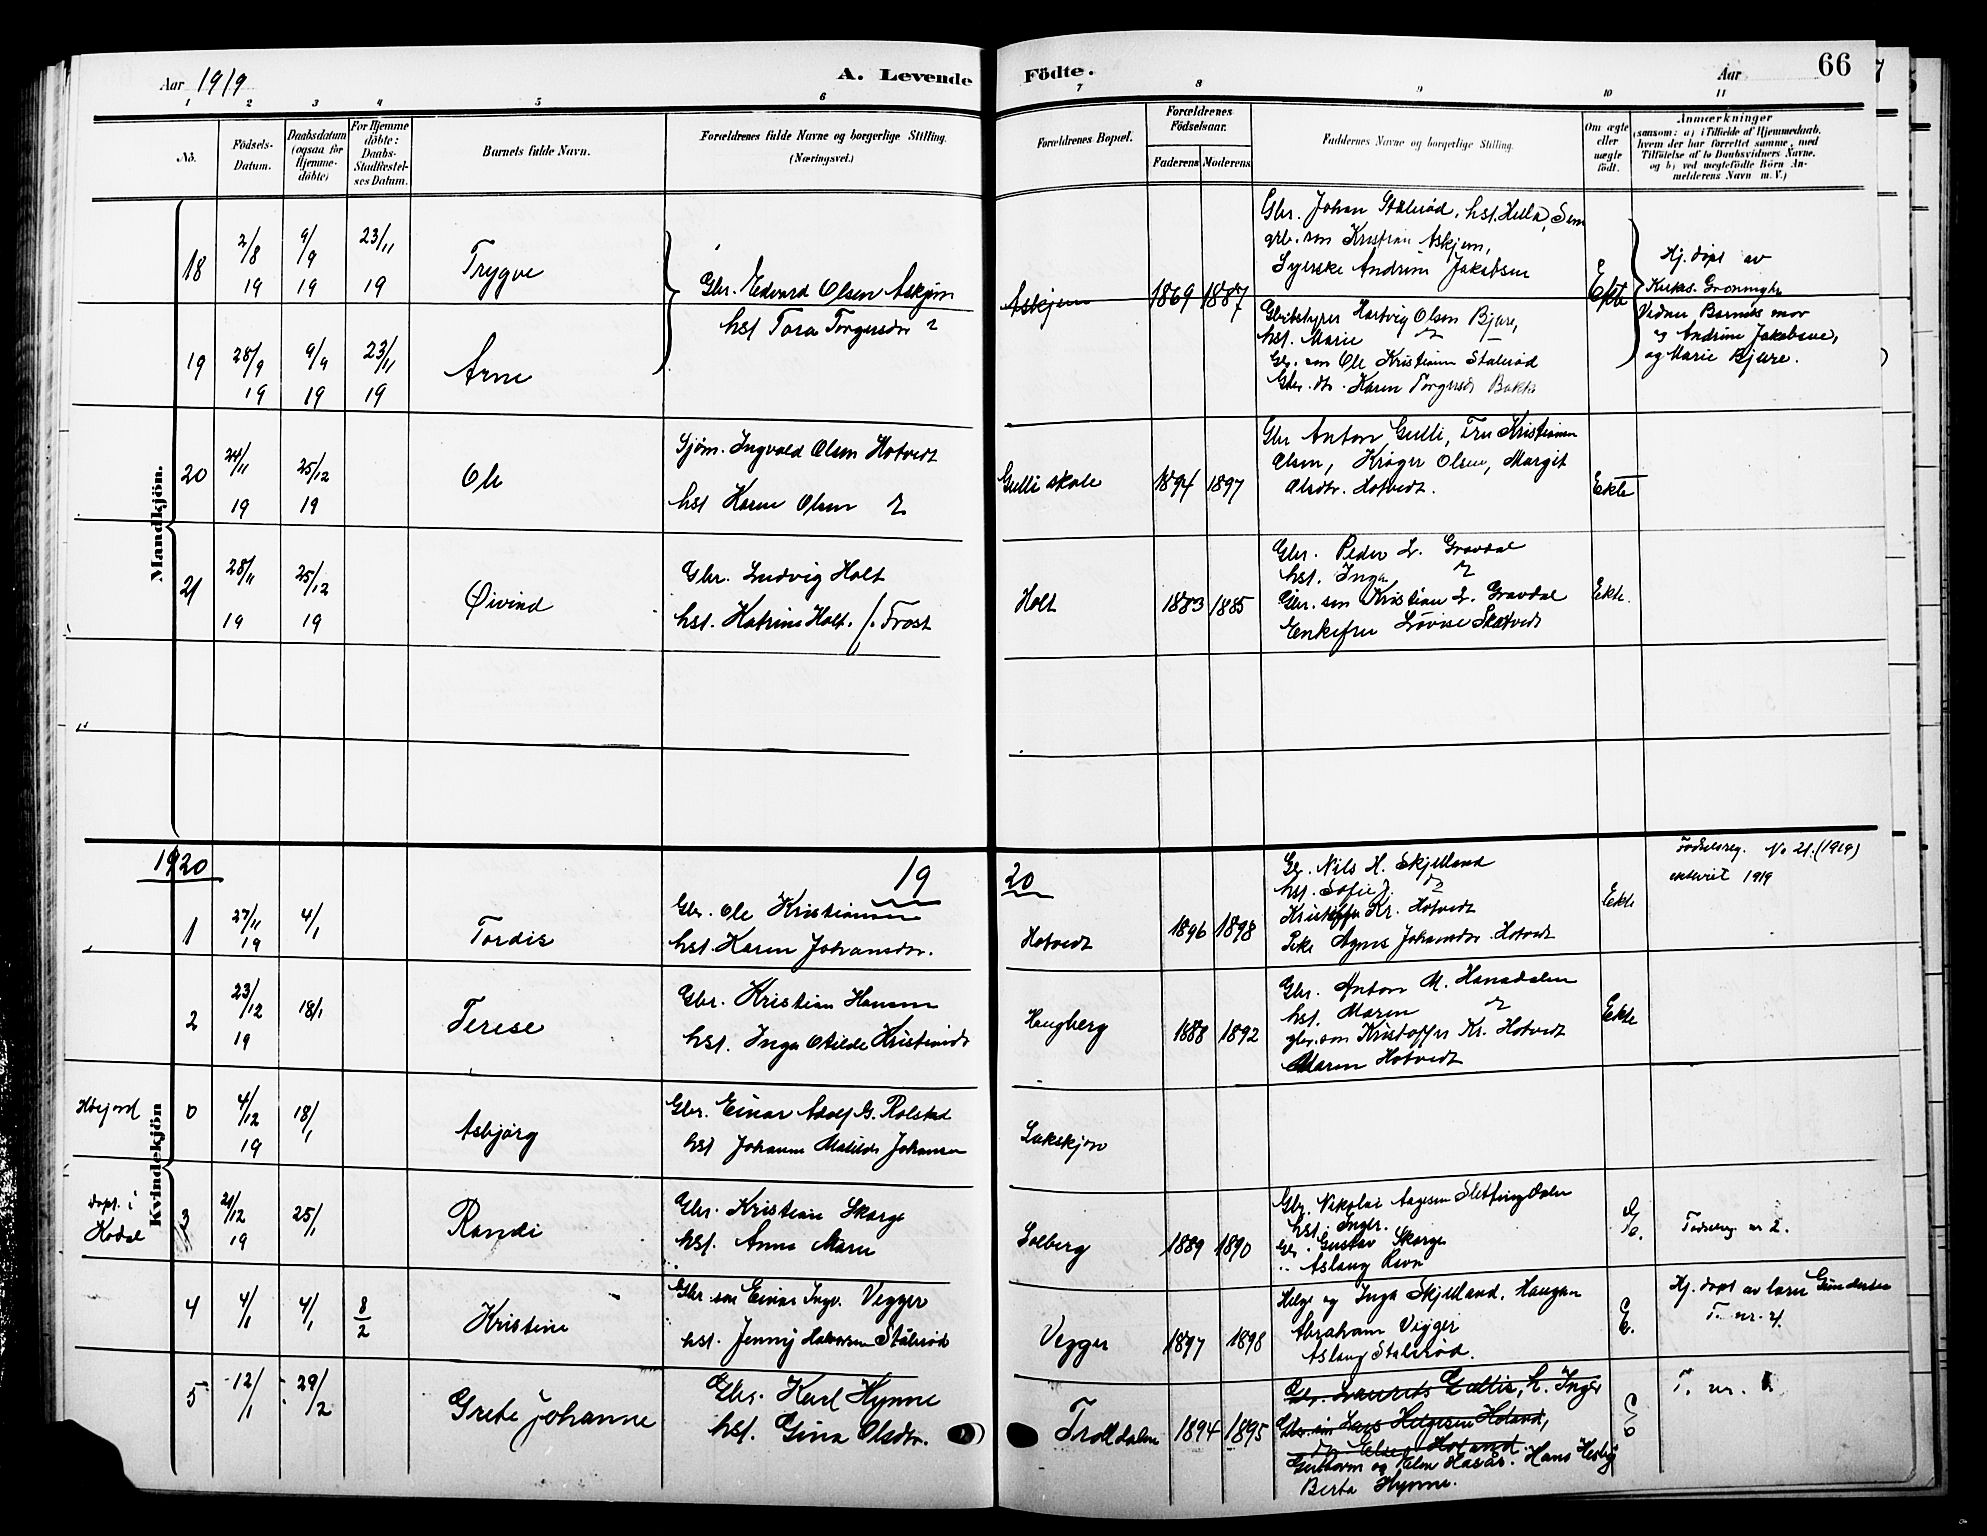 Aar 1919
A. Levende Födte.
Aar
66
1 2 3 4 5 6 7 8 9 10 11
No.
Födsels-Datum.
Daabsdatum (ogsaa for Hjemme-döbte)
For Hjemme döbte: Daabs-Stadfæstel-ses Datum.
Barnets fulde Navn.
Forældrenes fulde Navne og borgerlige Stilling.
(Næringsvei.)
Forældrenes Bopæl.
Forældrenes Födselsaar.
Faderens Moderens
Faddernes Navne og borgerlige Stilling.
Om ægte eller uægte födt.
Anmærkninger
(saasom: a) i Tilfælde af Hjemmedaab,
hvem der har forrettet samme, med
Tilföielse af to Daabsvidners Navne.
og b) ved uægtefödte Börn An-
melderens Navn m. V.)
Mandkjön.
18 2/8 19 9/9 19 23/11 19 Trygve
Gbr. Edvard Olsen Askjem
hst Tora Torgersdr
Askjem 1869 1887
Gbr. Johan Stålerød, hst. Hella, Sem
grb. søn Kristian Askjem,
Syerske Andrine Jakobsen
Ekte
Hj. døpt av
Kirkes. Grønningh
Vidner Barnets mor
og Andrine Jakobsen,
og Marie Bjure.
19 28/9 19 9/9 19 23/11 19 Arne
Gbrbstyrer Hartvig Olsen Bjure,
hst. Marie
Gbr. søn Ole Kristian Stålerød
Gbr. dtr. Karen Torgersd. Bakke
20 24/11 19 25/12 19 Ole
Sjøm. Ingvald Olsen Hotvedt
hst Karen Olsen
Gulli skole 1894 1897
Gbr Anton Gulli, Fru Kristiansen
Olsen, Krøger Olsen, Margit
Olsdtr. Hotvedt.
Ekte
21 28/11 19 25/12 19 Øivind
Gbr. Ludvig Holt
hst. Katrine Holt. f. Frost
Holt 1883 1885
Gbr. Peder L. Gravdal
hst. Inga
Gbr. søn Kristian L. Gravdal
Enkefru Lovise Skatvedt
Ekte.
1920
19 20
Kvindekjön
1 27/11 19 4/1 Tordis
Gbr. Ole Kristiansen
hst. Karen Johansdr.
Hotvedt 1896 1898
Gbr. Nils H. Skjelland
hst. Sofie J.
Kristoffer Kr. Hotvedt
Pike Agnes Johansdr. Hotvedt
Ekte
Fødselsreg. No 21. (1919)
1919
2 23/12 19 18/1 Terese
Gbr. Kristian Hansen
hst. Inga Otilde Kristiansdr
Haugberg 1888 1892
Gbr. Anton M. Hansdalen
hst. Maren
gbr. søn Kristoffer Kr. Hotvedt
Maren Hotvedt
Ekte
0 4/12 19 18/1 Asbjørg
Gbr. Einar Adolf G. Rolstad
hst Johanne Matilde Johansen
Lakskjøn
døpt i
Hodal
3 21/12 19 25/1 Randi
Gbr. Kristian Skorge
hst. Anna Marie
Solberg 1889 1890
Gbr. Nikolai Aagesen Sletfingdalen
hst. Inger.
Gbr. Gustav Skorge
" Aslaug Revn
Fødselreg nr 2.
4 4/1 4/1 8/2 Kristine
Gbr. søn Einar Ingv. Vegger
hst. Jenny Halvorsen Stålerød
Vegger 1897 1898
Helge og Inga Skjelland, Haugan
Abraham Vegger
Aslaug Stålerød.
E.
Hj. døpt av lærer Gundersen
F. nr. 4
5 12/1 29/2 Grete Johanne
Gbr. Karl Hynne
hst. Gina Olsdtr.
Trolldalen 1894 1895
Gbr. Laurits Gallis, h. Inger
Gbr. søn Lars Helgesen Høland,
Else Høland
Guttorm og Elen Hasås. Hans Hesby
Berta Hynne.
F. nr.